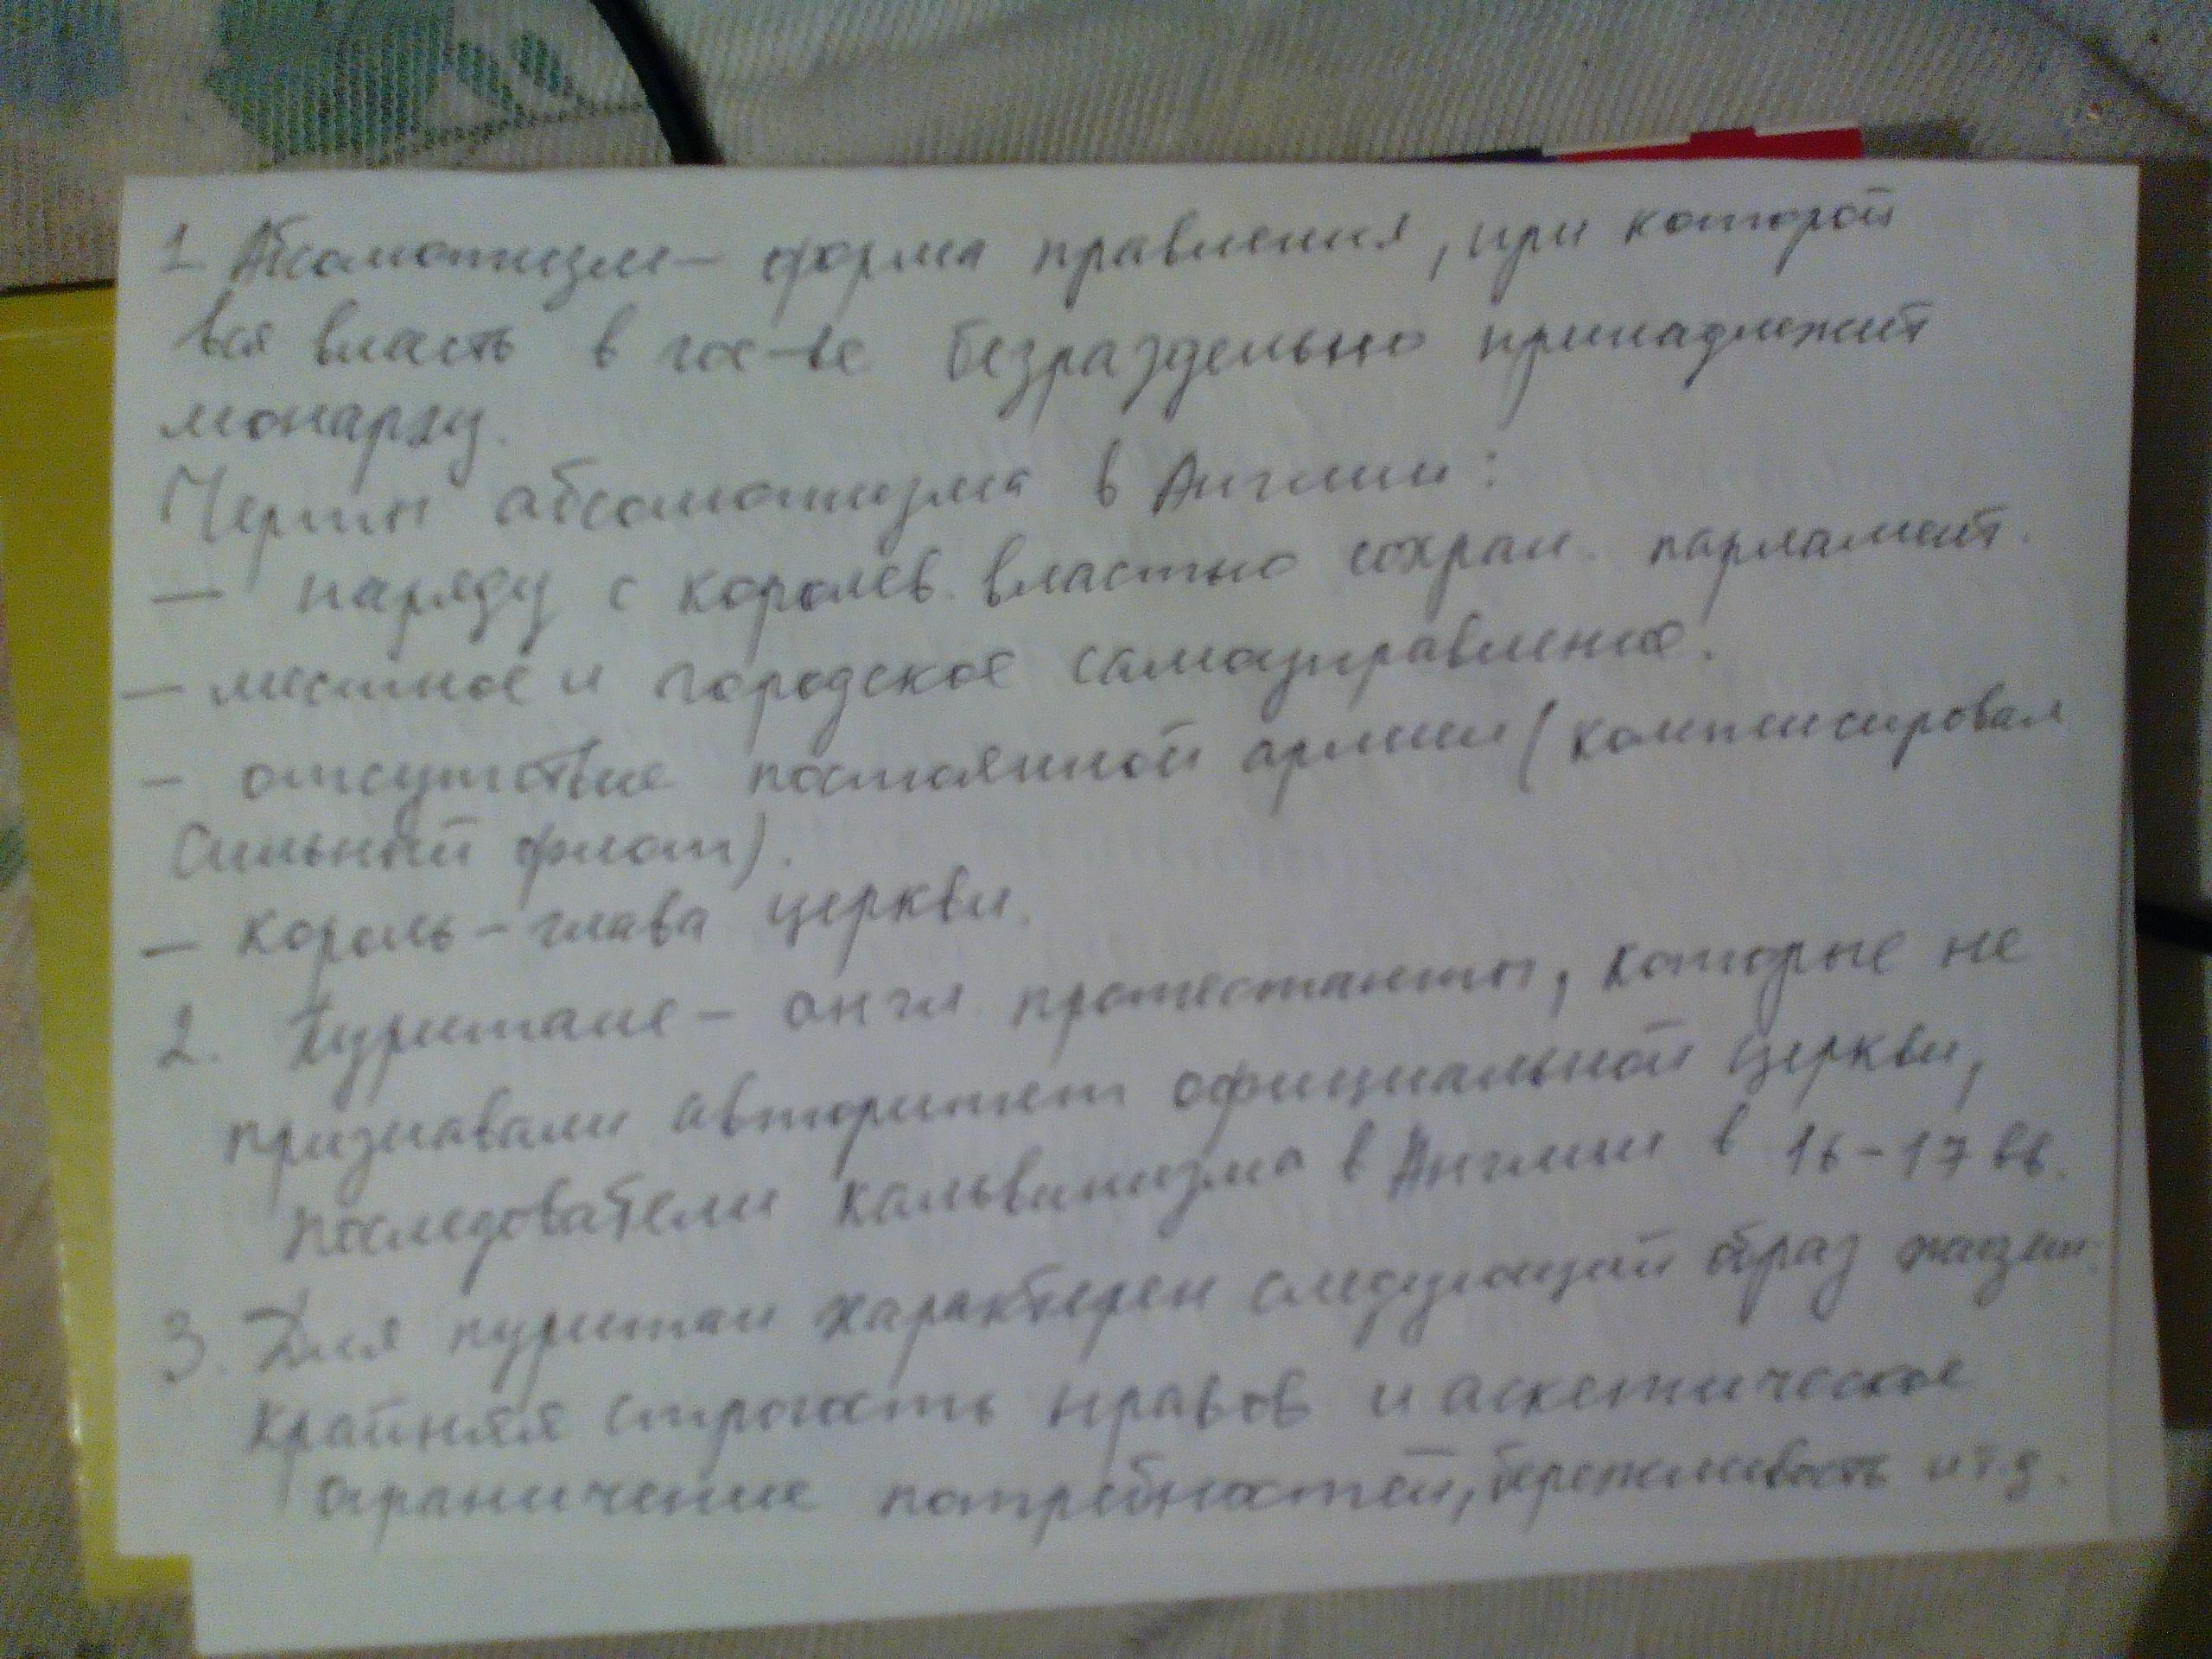 1 Абсолютизм – форма правления, при которой
вся власть в гос-ве безраздельно принадлежит
монарху.
Черты абсолютизма в Англии:
— наряду с королев. властью сохран. парламент.
— местное и городское самоуправление.
– отсутствие постоянной армии (компенсировал
сильный флот).
— король – глава церкви.
2. Пуритане – англ. протестанты, которые не
признавали авторитет официальной церкви,
последователи кальвинизма в Англии в 16-17 вв.
3. Для пуритан характерен следующий образ жизни:
крайняя строгость нравов и аскетическое
ограничение потребностей, бережливость и т.д.